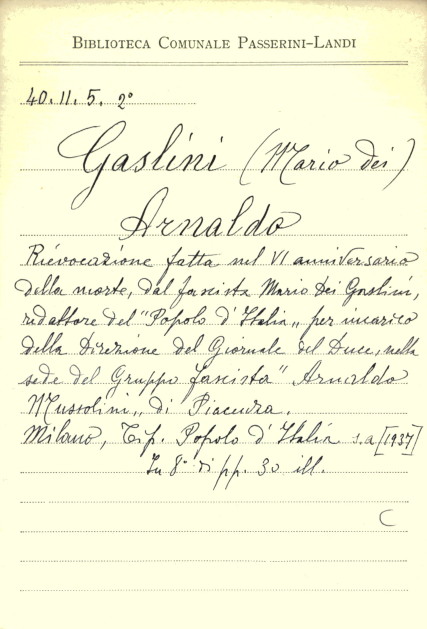 BIBLIOTECA COMUNALE PASSERINI-LANDI
40.11.5. 2°
Gaslini (Mario dei)
Arnaldo
Rievocazione fatta nel VI anniversario
della morte, dal fascista Mario Dei Gaslini,
redattore del "Popolo d'Italia„ per incarico
della Direzione del Giornale del Duce, nella
sede del Gruppo fascista "Arnaldo
Mussolini„ di Piacenza.
Milano, Tip. Popolo d'Italia s.a [1937]
In 8° di pp. 30 ill.
C